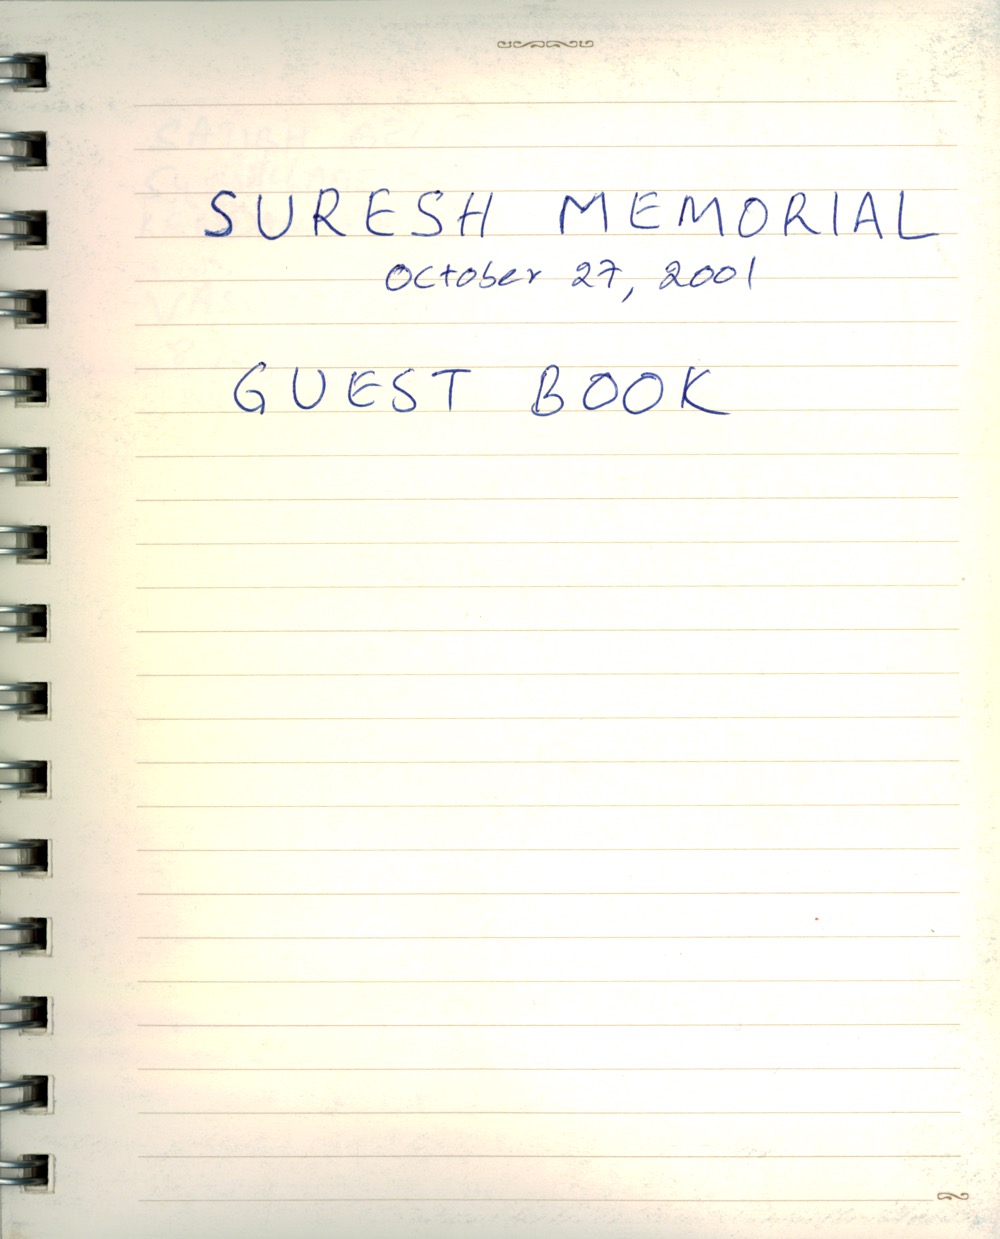 SURESH MEMORIAL
October 27, 2001
GUEST BOOK